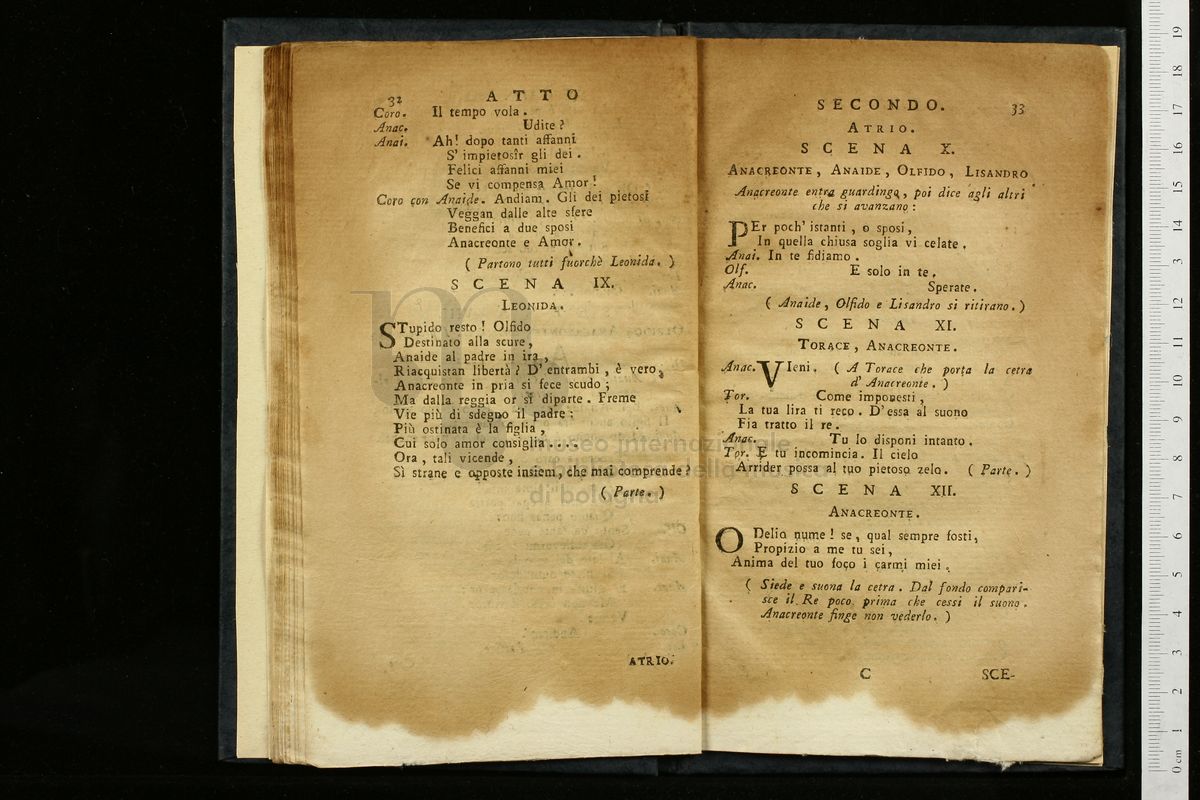 32 ATTO
Coro. Il tempo vola.
Anac. Udite?
Anai. Ah! dopo tanti affanni
S' impietosîr gli dei.
Felici affanni miei
Se vi compensa Amor!
Coro con Anaide. Andiam. Gli dei pietosi
Veggan dalle alte sfere
Benefici a due sposi
Anacreonte e Amor.
( Partono tutti fuorchè Leonida. )
SCENA IX.
LEONIDA.
STupido resto! Olfido
Destinato alla scure,
Anaide al padre in ira,
Riacquistan libertà? D' entrambi, è vero,
Anacreonte in pria si fece scudo;
Ma dalla reggia or si diparte. Freme
Vie più di sdegno il padre;
Più ostinata è la figlia,
Cui solo amor consiglia....
Ora, tali vicende,
Sì strane e opposte insiem, che mai comprende?
( Parte. )
ATRIO.
SECONDO. 33
ATRIO.
SCENA X.
ANACREONTE, ANAIDE, OLFIDO, LISANDRO
Anacreonte entra guardingo, poi dice agli altri
che si avanzano:
PEr poch' istanti, o sposi,
In quella chiusa soglia vi celate.
Anai. In te fidiamo.
Olf. E solo in te.
Anac. Sperate.
( Anaide, Olfido e Lisandro si ritirano. )
SCENA XI.
TORACE, ANACREONTE.
Anac. VIeni. ( A Torace che porta la cetra
d' Anacreonte. )
Tor. Come imponesti,
La tua lira ti reco. D'essa al suono
Fia tratto il re.
Anac. Tu lo disponi intanto.
Tor. E tu incomincia. Il cielo
Arrider possa al tuo pietoso zelo. ( Parte. )
SCENA XII.
ANACREONTE.
O Delio nume! se, qual sempre fosti,
Propizio a me tu sei,
Anima del tuo foco i carmi miei.
( Siede e suona la cetra. Dal fondo compari-
sce il Re poco prima che cessi il suono.
Anacreonte finge non vederlo. )
C SCE-
museo internazionale
della musica
di bologna
0 cm 1 2 3 4 5 6 7 8 9 10 11 12 13 14 15 16 17 18 19